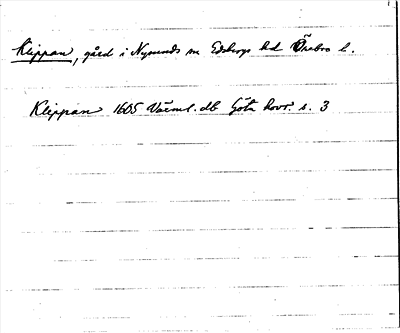 Klippan, gård i Nysunds sn Edsbergs hd Örebro l.
Klippan 1605 Värml. db Göta hovr. s. 3